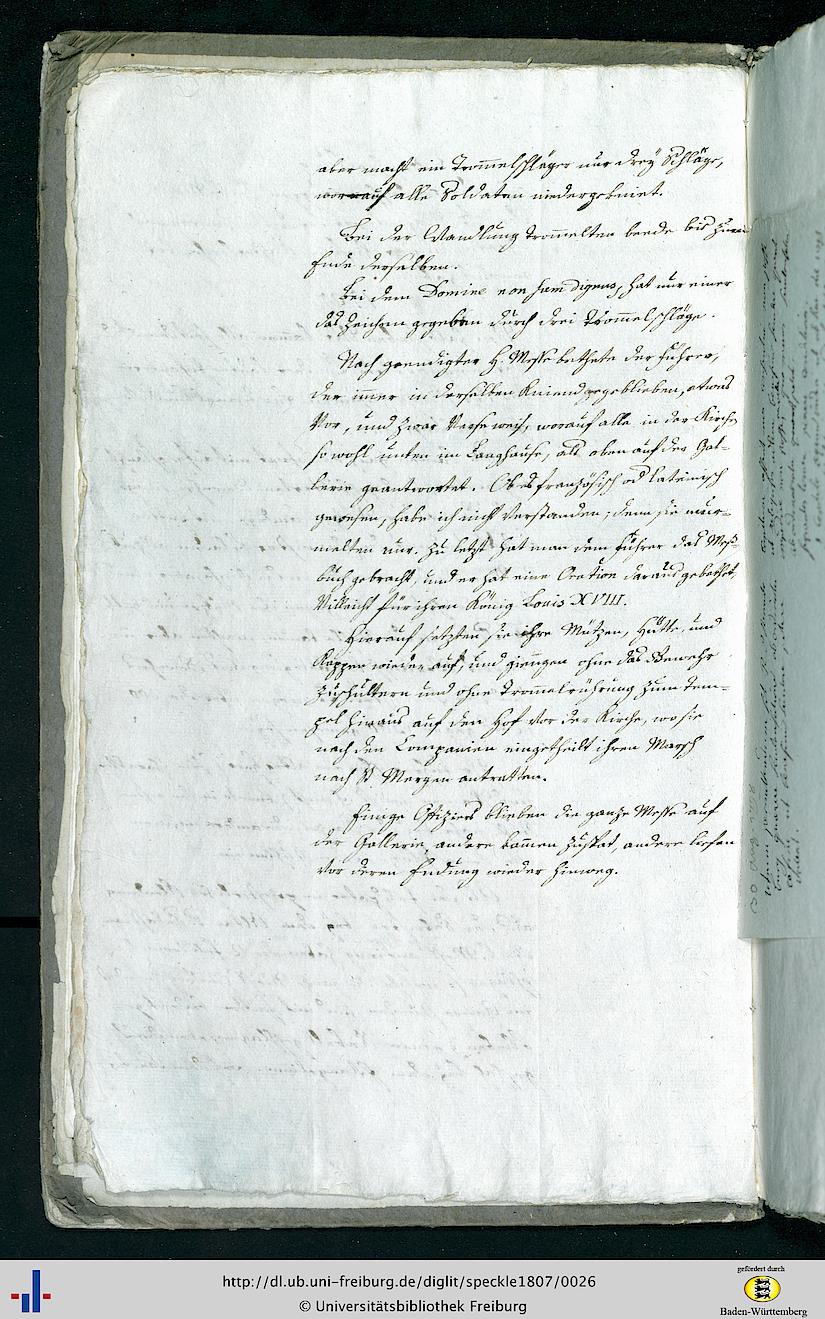 aber macht ein Trommelschläger nur drey Schläge,
worauf alle Soldaten niedergekniet.
Bei der Wandlung trommelten beede bis zum
Ende derselben.
Bei dem Domine non sum dignus, hat nur einer
das Zeichen gegeben durch drei Trommelschläge.
Nach geendigter H. Messe bethete der Führer,
der immer in derselben kniend geblieben, etwas
vor, und zwar Versweis, worauf alle in der Kirche
so wohl unten im Langhause, als oben auf der Gal-
lerie geantwortet. Ob es französisch od lateinisch
gewesen, habe ich nicht verstanden, denn sie mur-
melten nur. Zu letzt hat man dem Führer das Meß-
buch gebracht, und er hat eine Oration daraus gebethet,
villeicht für ihren König Louis XVIII.
Hierauf setzten sie ihre Mützen, Hütte, und
Kappen wieder auf, und giengen ohne das Gewehr
zu schultern und ohne Trommelrührung zum Tem-
pel hinaus auf den Hof vor der Kirche, wo sie
nach den Companien eingetheilt ihren Marsch
nach St Mergen antratten.
Einige Offiziers blieben die ganze Messe auf
der Gallerie, andere kammen zuspät, andere liefen
vor deren Endung wieder hinweg.
http://dl.ub.uni-freiburg.de/diglit/speckle1807/0026
© Universitätsbibliothek Freiburg
gefördert durch
Baden-Württemberg